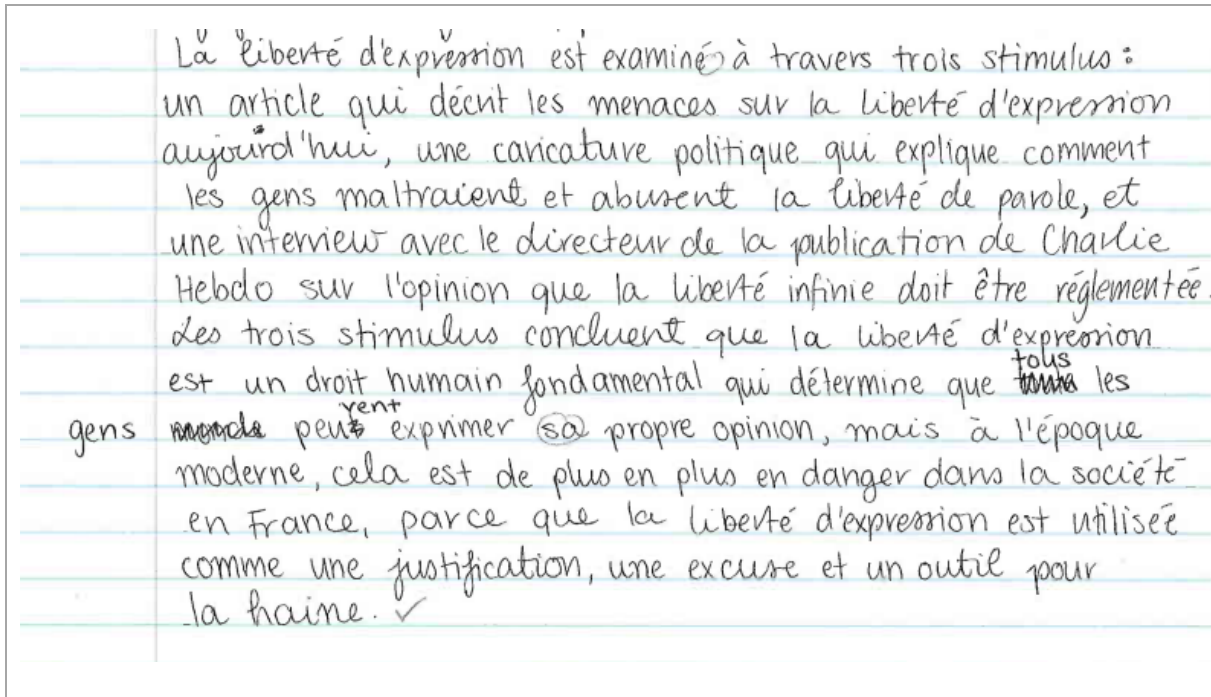 La liberté d'expression est examiné à travers trois stimulus :
un article qui décrit les menaces sur la liberté d'expression
aujourd'hui, une caricature politique qui explique comment
les gens maltraient et abusent la liberté de parole, et
une interview avec le directeur de la publication de Charlie
Hebdo sur l'opinion que la liberté infinie doit être réglementée.
Les trois stimulus concluent que la liberté d'expression
est un droit humain fondamental qui détermine que tous les
gens peuvent exprimer sa propre opinion, mais à l'époque
moderne, cela est de plus en plus en danger dans la société
en France, parce que la liberté d'expression est utilisée
comme une justification, une excuse et un outil pour
la haine.